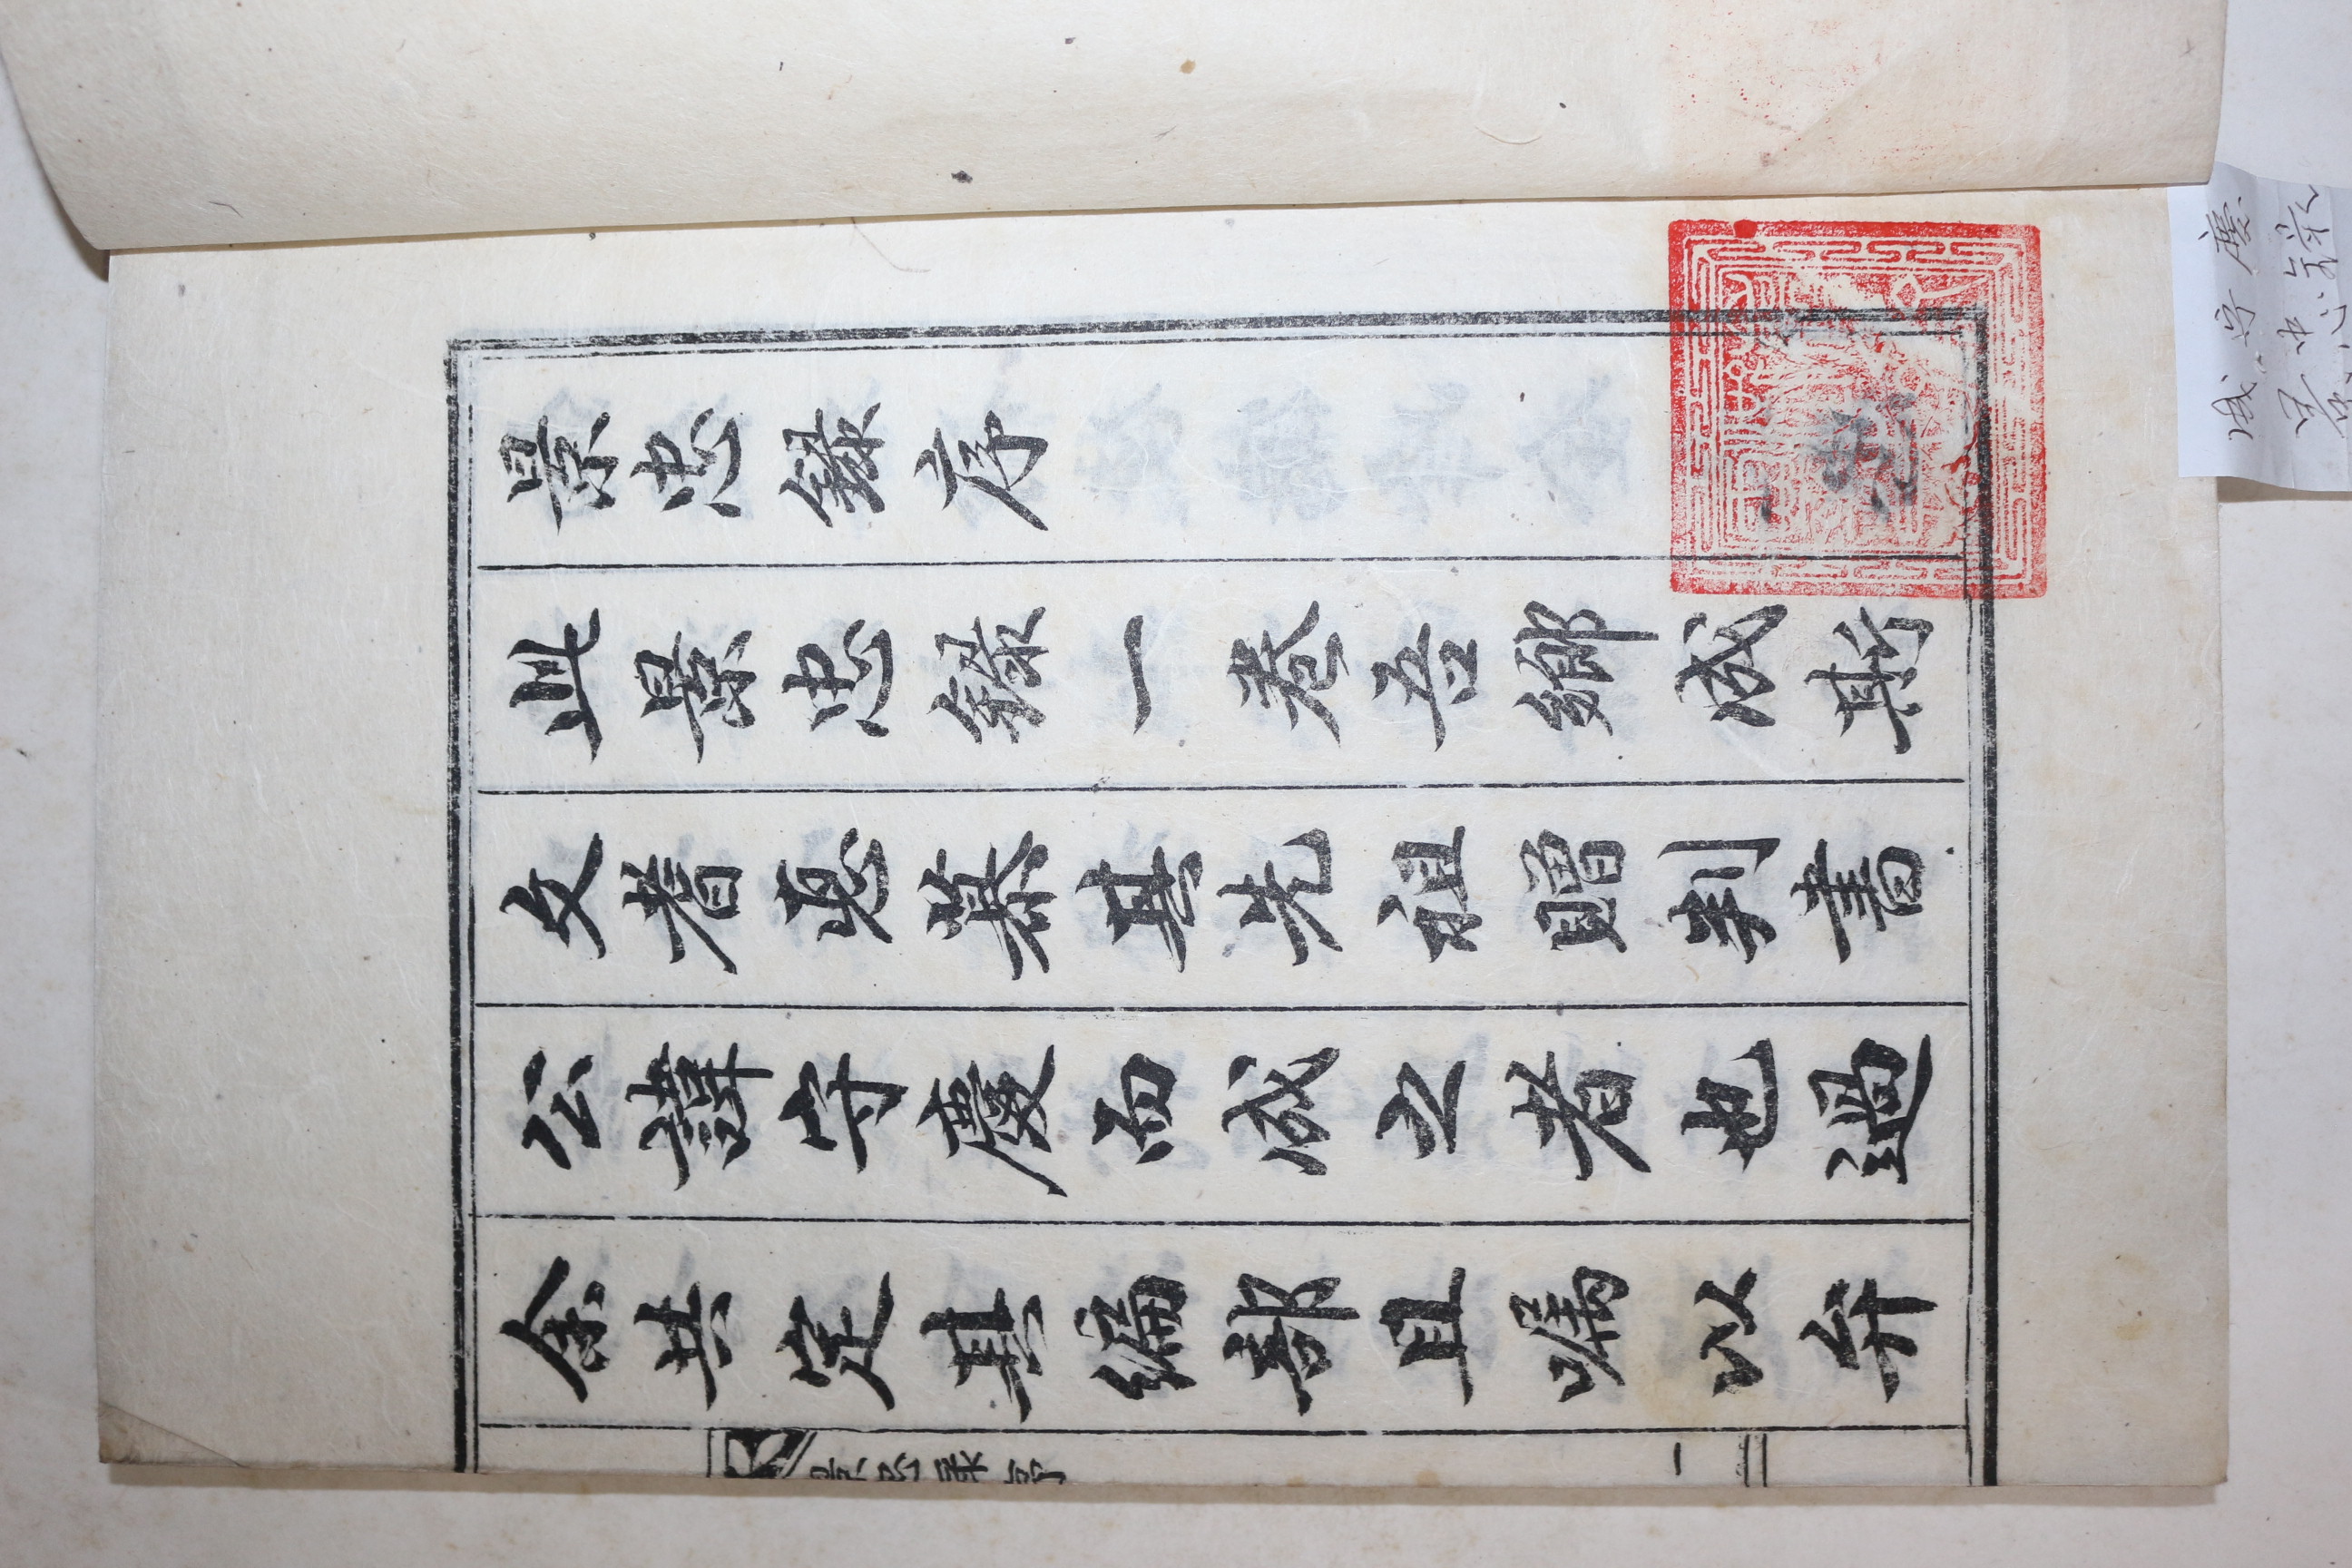 景忠録序
此景忠録一卷吾鄉成斯
文耆悳慕其先祖贈判書
公諱守慶而成之者也過
余共定其編部且嘱以弁
景忠録序
一
成守慶
景忠錄